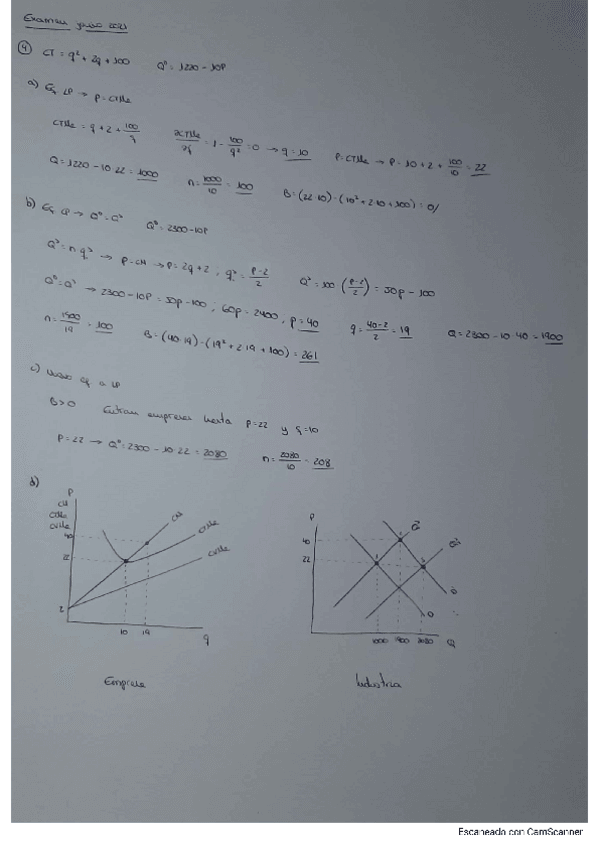 Examen junio 2021
4 CT = q² + 2q + 100 Qᴰ = 1220 - 10P
a) Eq LP → P = CTMe
CTMe = q + 2 + 100/q ∂CTMe/∂q = 1 - 100/q² = 0 → q = 10 P = CTMe → P = 10 + 2 + 100/10 = 22
Q = 1220 - 10·22 = 1000 n = 1000/10 = 100 B = (22·10) - (10² + 2·10 + 100) = 0/
b) Eq CP → Qᴰ = Qˢ Qᴰ = 2300 - 10P
Qˢ = n qˢ → P = CM → P = 2q + 2, qˢ = (P-2)/2 Qˢ = 100 ((P-2)/2) = 50P - 100
Qᴰ = Qˢ → 2300 - 10P = 50P - 100; 60P = 2400, P = 40 q = (40-2)/2 = 19 Q = 2300 - 10·40 = 1900
n = 1900/19 = 100 B = (40·19) - (19² + 2·19 + 100) = 261
c) Nuevo eq a LP
B > 0 Entran empresas hasta P = 22 y q = 10
P = 22 → Qᴰ = 2300 - 10·22 = 2080 n = 2080/10 = 208
d)
P
CM
CTMe
CVMe
40
22
2
10 19 q
CM
CTMe
CVMe
Empresa
P
40
22
1000 1900 2080 Q
D
Industria
Escaneado con CamScanner